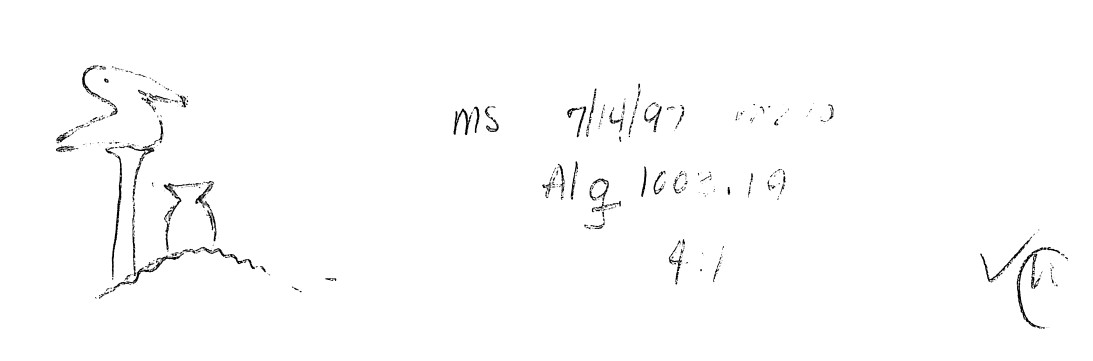 ms 7/14/97
Alg 1003.19
4:1